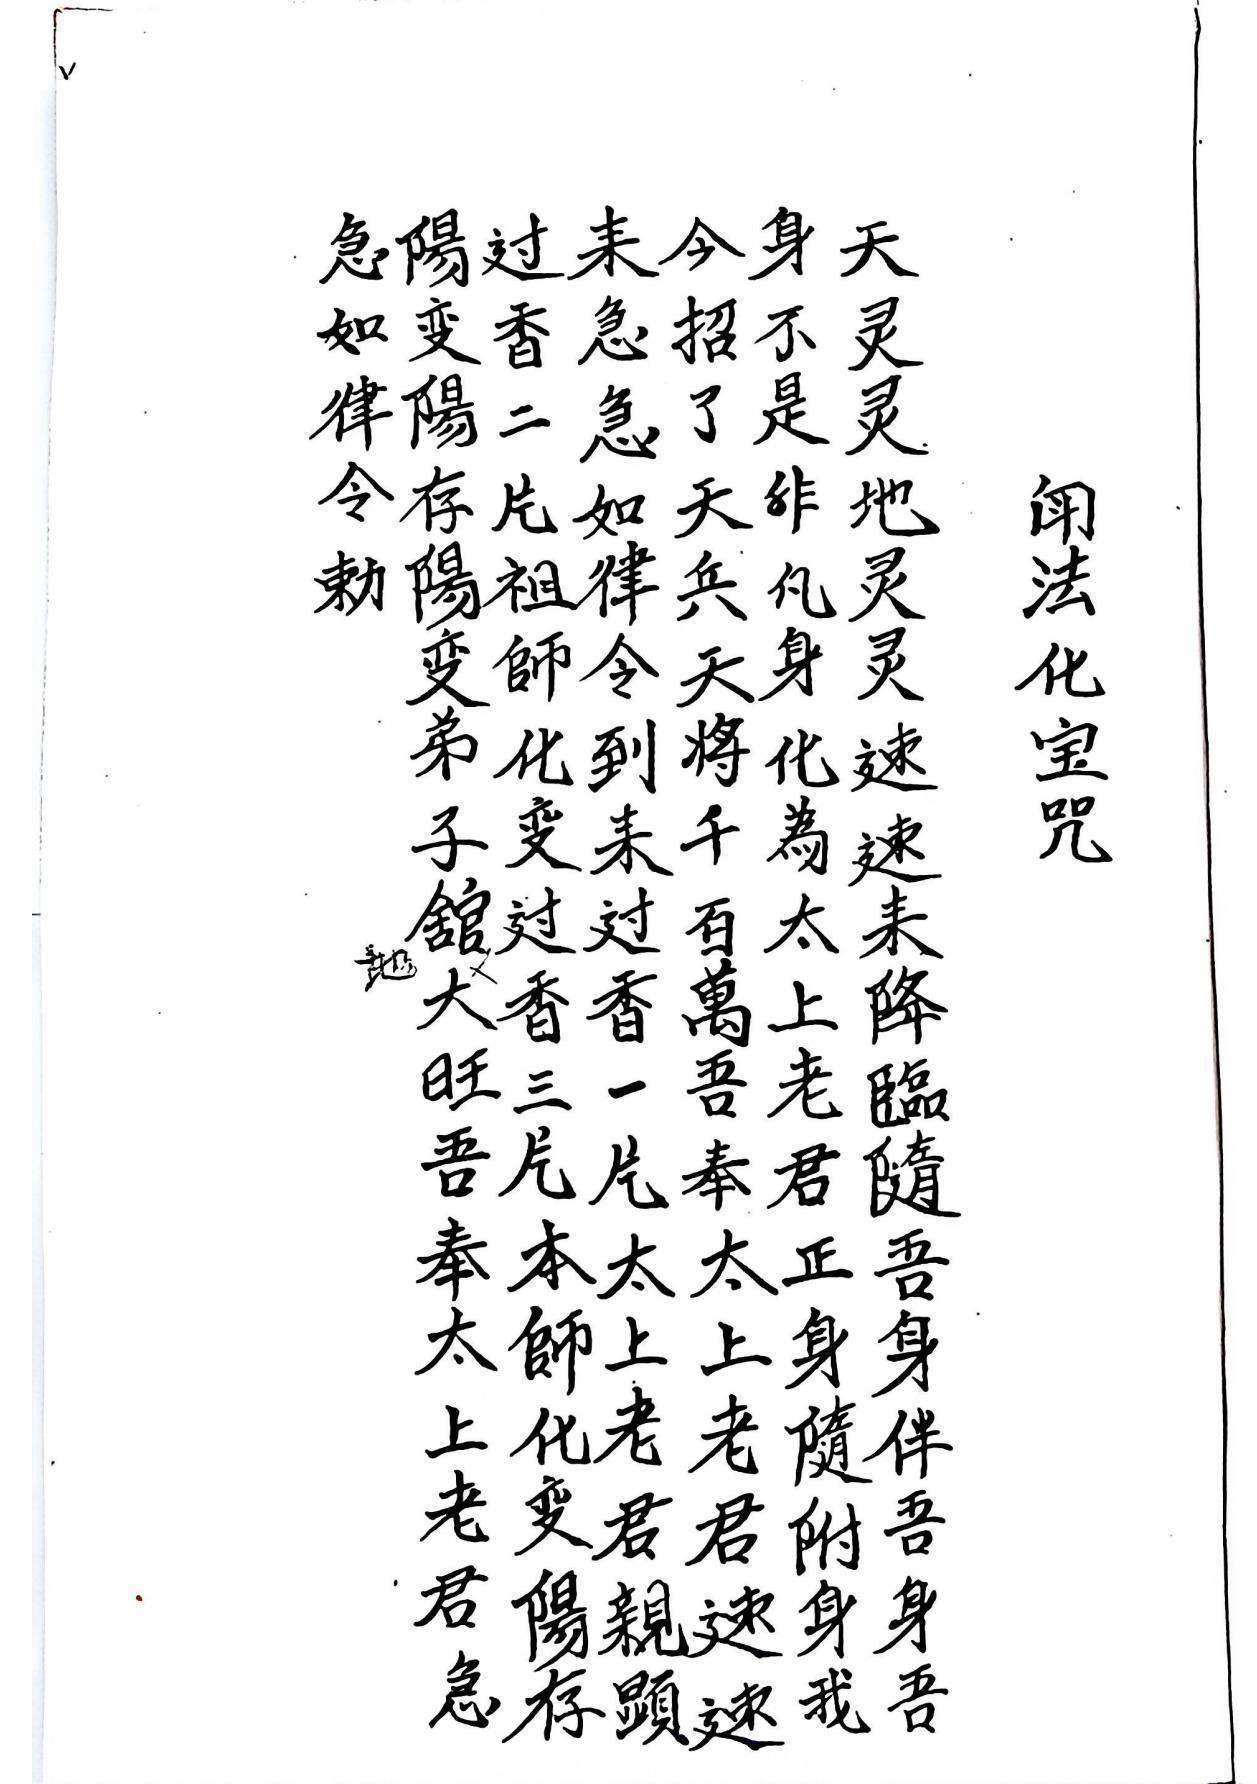 闬法化宝咒
天灵灵地灵灵速速来降臨隨吾身伴吾身吾
身不是非凡身化為太上老君正身隨附身我
今招了天兵天将千百萬吾奉太上老君速速
来急急如律令到来过香一片太上老君親顕
过香二片祖師化变过香三片本師化变陽存
陽变陽存陽变弟子舘大旺吾奉太上老君急
急如律令勅